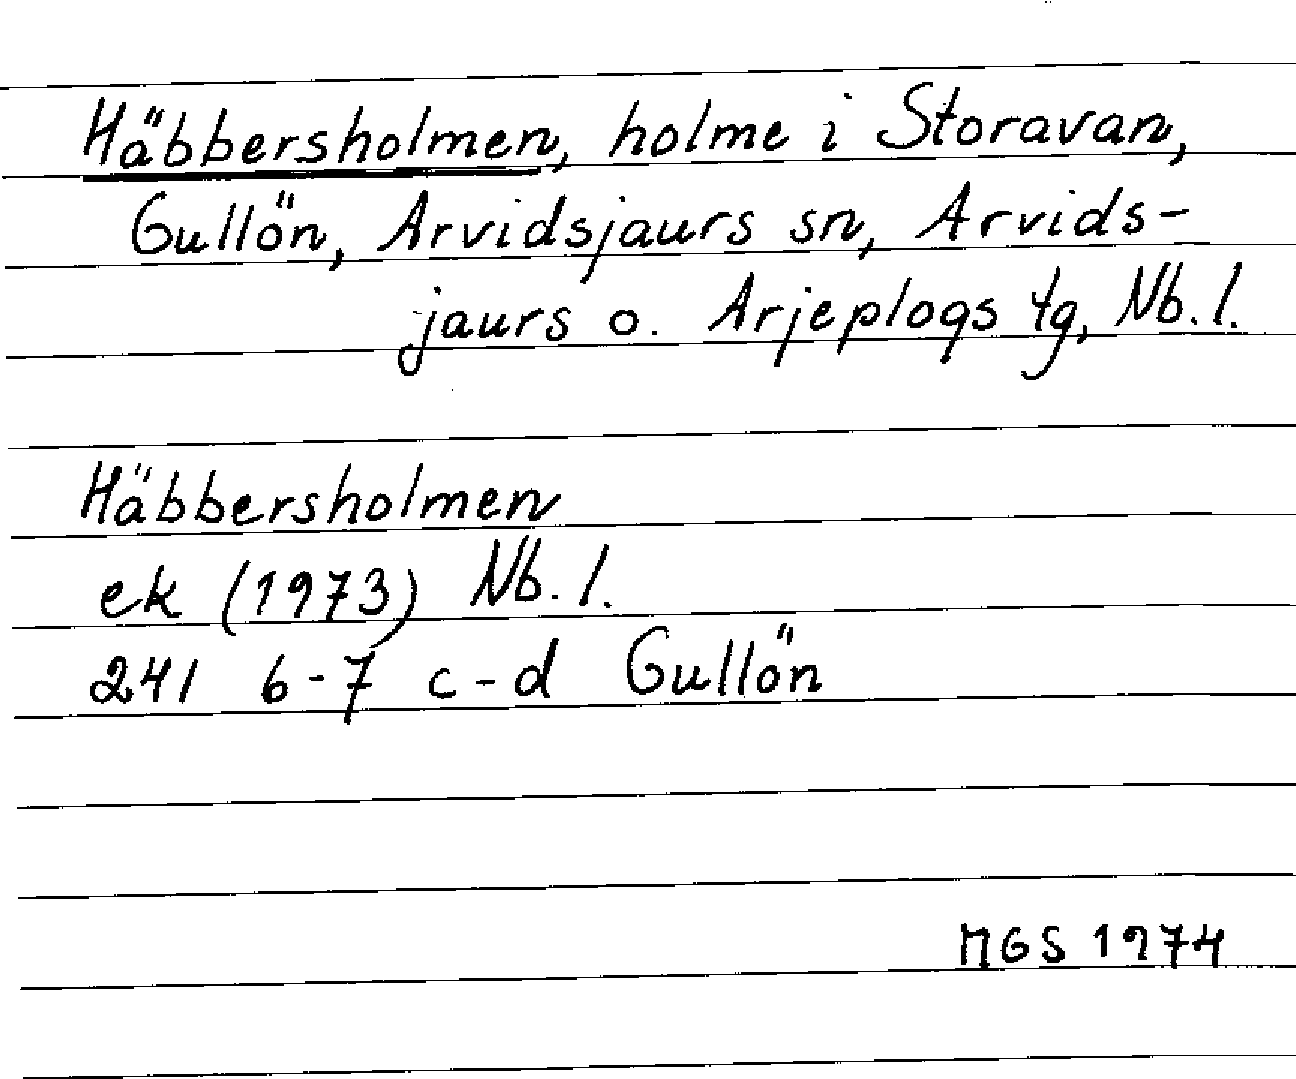 Häbbersholmen, holme i Storavan,
Gullön, Arvidsjaurs sn, Arvids-
jaurs o. Arjeplogs tg, Nb. l.
Häbbersholmen
ek (1973) Nb. l.
241 6-7 c-d Gullön
MGS 1974